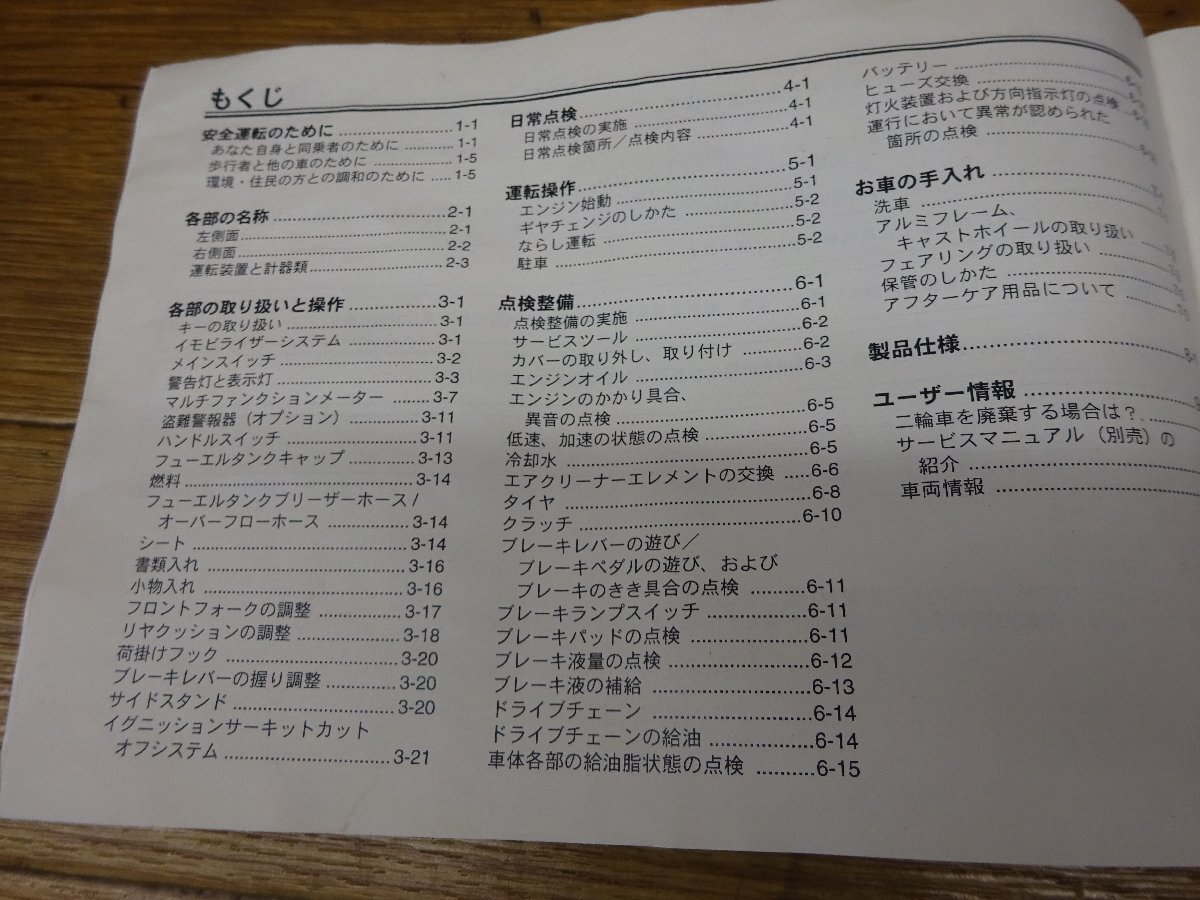 もくじ
安全運転のために ... 1-1
あなた自身と同乗者のために ... 1-1
歩行者と他の車のために ... 1-5
環境・住民の方との調和のために ... 1-5
各部の名称 ... 2-1
左側面 ... 2-1
右側面 ... 2-2
運転装置と計器類 ... 2-3
各部の取り扱いと操作 ... 3-1
キーの取り扱い ... 3-1
イモビライザーシステム ... 3-1
メインスイッチ ... 3-2
警告灯と表示灯 ... 3-3
マルチファンクションメーター ... 3-7
盗難警報器（オプション） ... 3-11
ハンドルスイッチ ... 3-11
フューエルタンクキャップ ... 3-13
燃料 ... 3-14
フューエルタンクブリーザーホース/
オーバーフローホース ... 3-14
シート ... 3-14
書類入れ ... 3-16
小物入れ ... 3-16
フロントフォークの調整 ... 3-17
リヤクッションの調整 ... 3-18
荷掛けフック ... 3-20
ブレーキレバーの握り調整 ... 3-20
サイドスタンド ... 3-20
イグニッションサーキットカット
オフシステム ... 3-21
日常点検 ... 4-1
日常点検の実施 ... 4-1
日常点検箇所／点検内容 ... 4-1
運転操作 ... 5-1
エンジン始動 ... 5-1
ギヤチェンジのしかた ... 5-2
ならし運転 ... 5-2
駐車 ... 5-2
点検整備 ... 6-1
点検整備の実施 ... 6-1
サービスツール ... 6-2
カバーの取り外し、取り付け ... 6-2
エンジンオイル ... 6-3
エンジンのかかり具合、
異音の点検 ... 6-5
低速、加速の状態の点検 ... 6-5
冷却水 ... 6-5
エアクリーナーエレメントの交換 ... 6-6
タイヤ ... 6-8
クラッチ ... 6-10
ブレーキレバーの遊び／
ブレーキペダルの遊び、および
ブレーキのきき具合の点検 ... 6-11
ブレーキランプスイッチ ... 6-11
ブレーキパッドの点検 ... 6-11
ブレーキ液量の点検 ... 6-12
ブレーキ液の補給 ... 6-13
ドライブチェーン ... 6-14
ドライブチェーンの給油 ... 6-14
車体各部の給油脂状態の点検 ... 6-15
バッテリー ...
ヒューズ交換 ...
灯火装置および方向指示灯の点検 ...
運行において異常が認められた
箇所の点検 ...
お車の手入れ ...
洗車 ...
アルミフレーム、
キャストホイールの取り扱い ...
フェアリングの取り扱い ...
保管のしかた ...
アフターケア用品について ...
製品仕様 ...
ユーザー情報 ...
二輪車を廃棄する場合は？ ...
サービスマニュアル（別売）の
紹介 ...
車両情報 ...